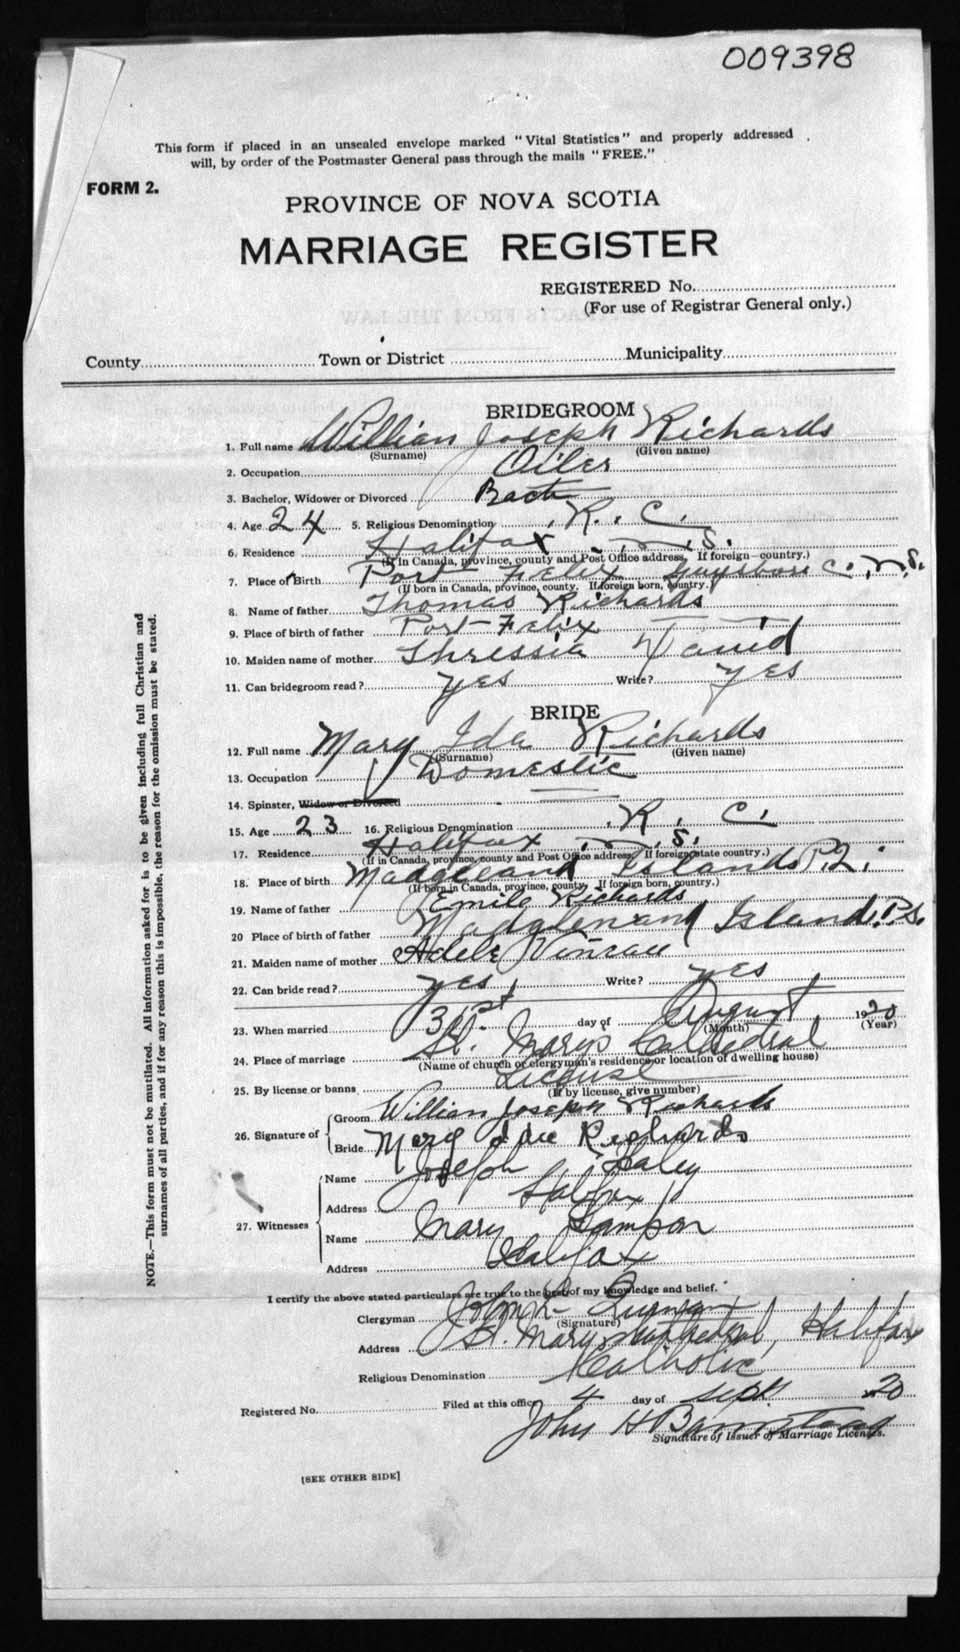 009398
This form if placed in an unsealed envelope marked "Vital Statistics" and properly addressed
will, by order of the Postmaster General pass through the mails "FREE."
FORM 2.
PROVINCE OF NOVA SCOTIA
MARRIAGE REGISTER
REGISTERED No.
(For use of Registrar General only.)
County Town or District Municipality
BRIDEGROOM
1. Full name William Joseph Richards
(Surname) (Given name)
2. Occupation Oiler
3. Bachelor, Widower or Divorced Bach
4. Age 24 5. Religious Denomination R. C.
6. Residence Halifax N. S.
(If in Canada, province, county and Post Office address. If foreign country.)
7. Place of Birth Port Felix Guysboro Co. N.S.
(If born in Canada, province, county. If foreign born, country.)
8. Name of father Thomas Richards
9. Place of birth of father Port Felix
10. Maiden name of mother Thressia David
11. Can bridegroom read? yes Write? yes
BRIDE
12. Full name Mary Ida Richards
(Surname) (Given name)
13. Occupation Domestic
14. Spinster, Widow or Divorced
15. Age 23 16. Religious Denomination R. C.
17. Residence Halifax N. S.
(If in Canada, province, county and Post Office address. If foreign state country.)
18. Place of birth Madgeleand Islands P.Q.
(If born in Canada, province, county. If foreign born, country.)
19. Name of father Emile Richards
20 Place of birth of father Island
21. Maiden name of mother Adele
22. Can bride read? yes Write? yes
23. When married 31st day of August 1920
(Month) (Year)
24. Place of marriage St. Marys Cathedral
(Name of church or clergyman's residence or location of dwelling house)
25. By license or banns License
(If by license, give number)
26. Signature of Groom William Joseph Richards
Bride Mary Richards
27. Witnesses Name Joseph
Address Halifax
Name Mary Sampson
Address Halifax
I certify the above stated particulars are true to the best of my knowledge and belief.
Clergyman John
(Signature)
Address St. Marys Cathedral, Halifax
Religious Denomination Catholic
Registered No. Filed at this office 4 day of Sept 20
John H Barnstead
Signature of Issuer of Marriage Licenses.
[SEE OTHER SIDE]
NOTE.—This form must not be mutilated. All information asked for is to be given including full Christian and
surnames of all parties, and if for any reason this is impossible, the reason for the omission must be stated.